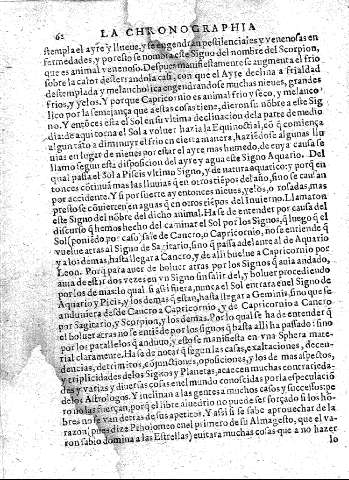 62 LA CHRONOGRAPHIA
stempla el ayre y llueue, y se engendrán pestilenciales y venenosas en
fermedades, y por esto se nombra este Signo del nombre del Scorpion,
que es animal venenoso. Despues manifiestamente se augmenta el frio
sobre la calor desterrandola casi, con que el Ayre declina a frialdad
destemplada y melancholica engendrandose muchas nieues, grandes
frios, y yelos. Y porque Capricornio es animal frio y seco, y melanco
lico por la semejança que a estas cosas tiene, dieron su nõbre a este Sig
no. Y entõces esta el Sol en su vltima declinacion dela parte de medio
dia: de aqui torna el Sol a voluer hazia la Equinoctial, cõ q̃ comiença
algun tãto a diminuyr el frio en cierta manera, haziẽdose algunas llu
uias en lugar de nieues por estar el ayre mas humedo, de cuya causa se
llamo segun esta disposicion del ayre y agua este Signo Aquario. Del
qual passa el Sol a Piscis vltimo Signo, y de natura aquatico: y porq̃ en
tonces cõtinuã mas las lluuias q̃ en otros tiẽpos del año, sino se causan
por accidente. Y si por suerte ay entonces nieues, yelos, o rosadas, mas
presto se cõuierten en aguas q̃ en otros tiẽpos del Inuierno. Llamaron
este Signo del nõbre del dicho animal. Ha se de entender por causa del
discurso q̃ hemos hecho del caminar el Sol por los Signos, q̃ luego q̃ el
Sol (poniẽdo por caso) sale de Cancro, o Capricornio, no se entiende q̃
vuelue atras al Signo de Sagitario, sino q̃ passa adelante al de Aquario
y a los demas, hasta llegar a Cancro, y de alli buelue a Capricornio por
Leon. Porq̃ para auer de boluer atras por los Signos q̃ auia andado,
auia de estar dos vezes en vn Signo sin salir del, y boluer procediendo
por los de mas: lo qual si assi fuera, nunca el Sol entrara en el Signo de
Aquario y Picis, y los demas q̃ estan, hasta llegar a Geminis, sino que se
anduuiera desde Cancro a Capricornio, y de Capricornio a Cancro
por Sagitario, y Scorpion, y los demas. Por lo qual se ha de entender q̃
el boluer atras no se entiẽde por los signos q̃ hasta alli ha passado: sino
por los parallelos q̃ anduuo, y esto se manifiesta en vna Sphera mate-
rial claramente. Ha se de notar q̃ segun las casas, exaltaciones, decen-
dencias, detrimẽtos, cõjunctiones, oposiciones, y los de mas aspectos,
y triplicidades de los Signos y Planetas, acaecen muchas contrarieda-
des y varias y diuersas cosas en el mundo conoscidas por la especulaciõ
delos Astrologos. Y inclinan a las gentes a muchos casos y successos: pe
ro no las fuerçan, porq̃ el libre aluedrio no puede ser forçado si los hõ-
bres no se van detras de sus apetitos. Y assi si se sabe aprouechar de la
razon, (pues dize Ptholomeo en el primero de su Almagesto, que el va
ron sabio domina a las Estrellas) euitara muchas cosas que a no hazer
lo